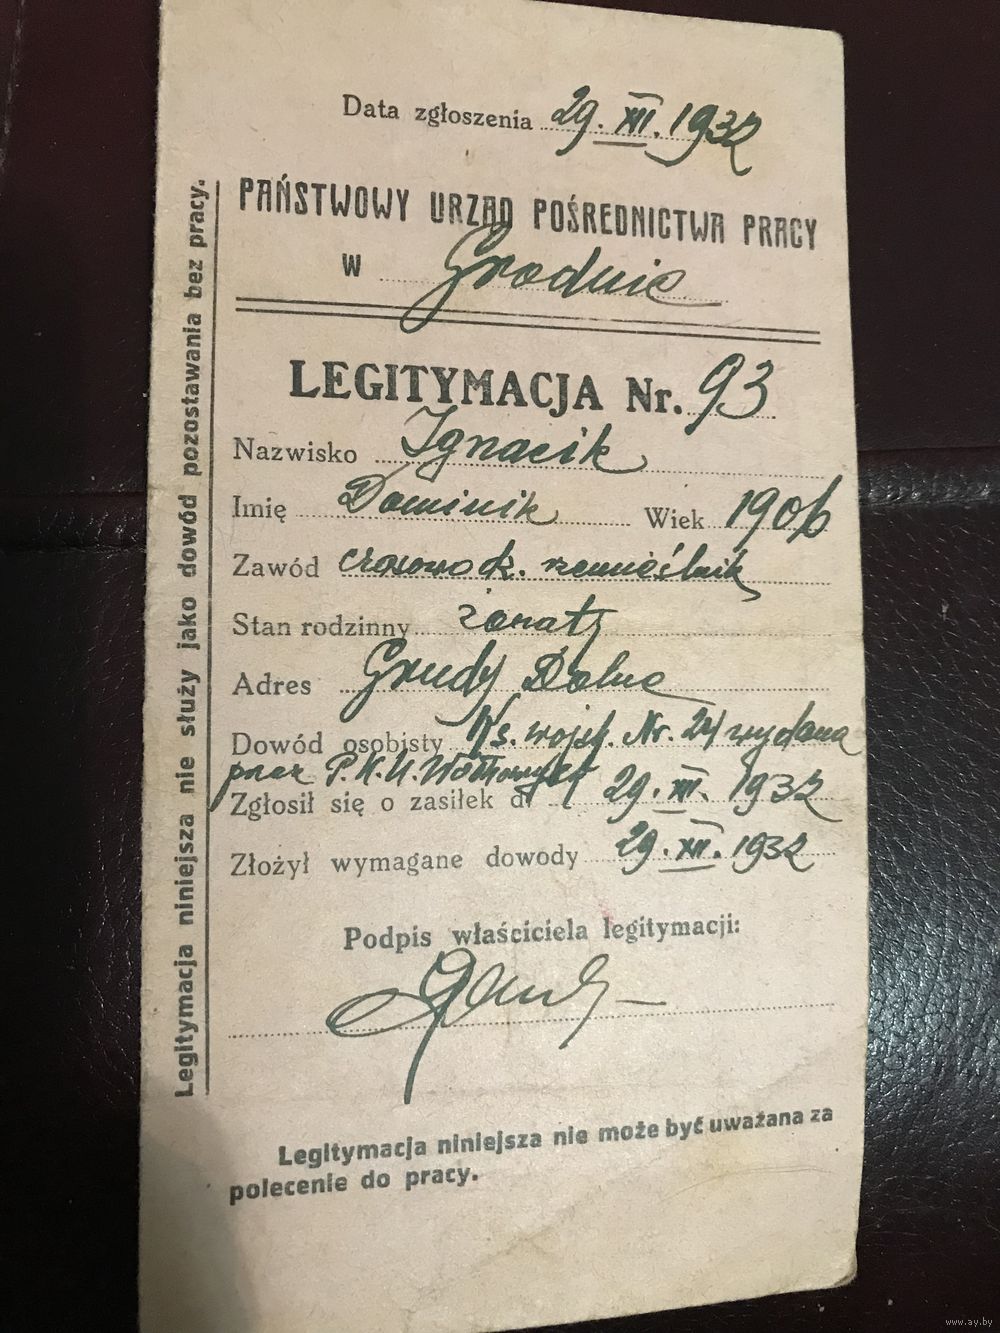 Data zgłoszenia 29. XII. 1932
PAŃSTWOWY URZĄD POŚREDNICTWA PRACY
W Grodnie
LEGITYMACJA Nr. 93
Nazwisko Ignacik
Imię Dominik Wiek 1906
Zawód rzemieślnik
Stan rodzinny żonaty
Adres Grudy Dolne
Dowód osobisty Ks. wojsk. Nr. 24 wydana
przez P.K.U. Wołkowysk
Zgłosił się o zasiłek d. 29. XII. 1932
Złożył wymagane dowody 29. XII. 1932
Podpis właściciela legitymacji:
Legitymacja niniejsza nie może być uważana za
polecenie do pracy.
Legitymacja niniejsza nie służy jako dowód pozostawania bez pracy.
www.ay.by